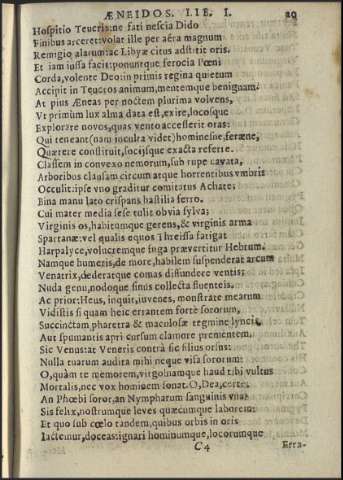 ÆNEIDOS. LIB. I. 20
Hospitio Teucris: ne fati nescia Dido
Finibus arceret: volat ille per aëra magnum
Remigio alarum: ac Libyæ citus adstitit oris.
Et iam iussa facit: ponuntque ferocia Pœni
Corda, volente Deo: in primis regina quietum
Accipit in Teucros animum, mentemque benignam.
At pius Æneas per noctem plurima volvens,
Vt primum lux alma data est, exire, locosque
Explorare novos, quas vento accesserit oras:
Qui teneant (nam inculta videt) hominesne, feræne,
Quærere constituit, socijsque exacta referre.
Classem in convexo nemorum, sub rupe cavata,
Arboribus clausam circum atque horrentibus vmbris
Occulit: ipse vno graditur comitatus Achate:
Bina manu lato crispans hastilia ferro.
Cui mater media sese tulit obvia sylva;
Virginis os, habitumque gerens, & virginis arma
Spartanæ: vel qualis equos Threissa fatigat
Harpalyce, volucremque fuga prævertitur Hebrum.
Namque humeris, de more, habilem suspenderat arcum
Venatrix, dederatque comas diffundere ventis:
Nuda genu, nodoque sinus collecta fluentis.
Ac prior: Heus, inquit, iuvenes, monstrate mearum
Vidistis si quam heic errantem forte sororum,
Succinctam pharetra & maculosæ tegmine lyncis,
Aut spumantis apri cursum clamore prementem.
Sic Venus: at Veneris contrà sic filius orsus:
Nulla tuarum audita mihi neque visa sororum:
O, quàm te memorem, virgo? namque haud tibi vultus
Mortalis, nec vox hominem sonat. O, Dea, certe:
An Phœbi soror, an Nympharum sanguinis vna?
Sis felix, nostrumque leves quæcumque laborem:
Et quo sub cœlo tandem, quibus orbis in oris
Iactemur, doceas: ignari hominumque, locorumque
C4 Erra-